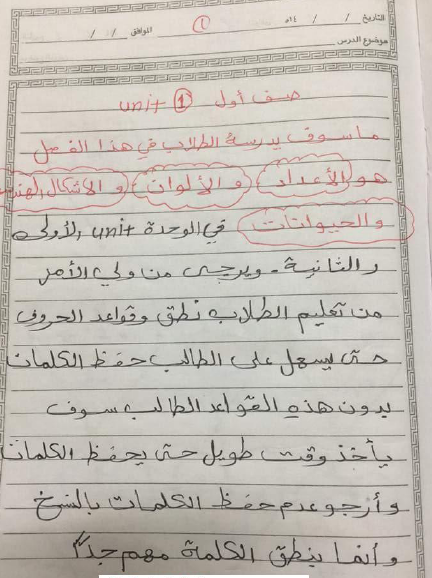 التاريخ / / ١٤هـ الموافق / /
موضوع الدرس
صف أول unit 1
ما سوف يدرسة الطلاب في هذا الفصل
هو الأعداد والألوان والاشكال الهند
والحيوانات في الوحدة unit الأولى
والثانية - ويرجى من ولي الأمر
من تعليم الطلاب نطق وقواعد الحروف
حتى يسهل على الطالب حفظ الكلمات
بدون هذه القواعد الطالب سوف
يأخذ وقت طويل حتى يحفظ الكلمات
وأرجو عدم حفظ الكلمات بالنسخ
وأنما ينطق الكلمة مهم جداً